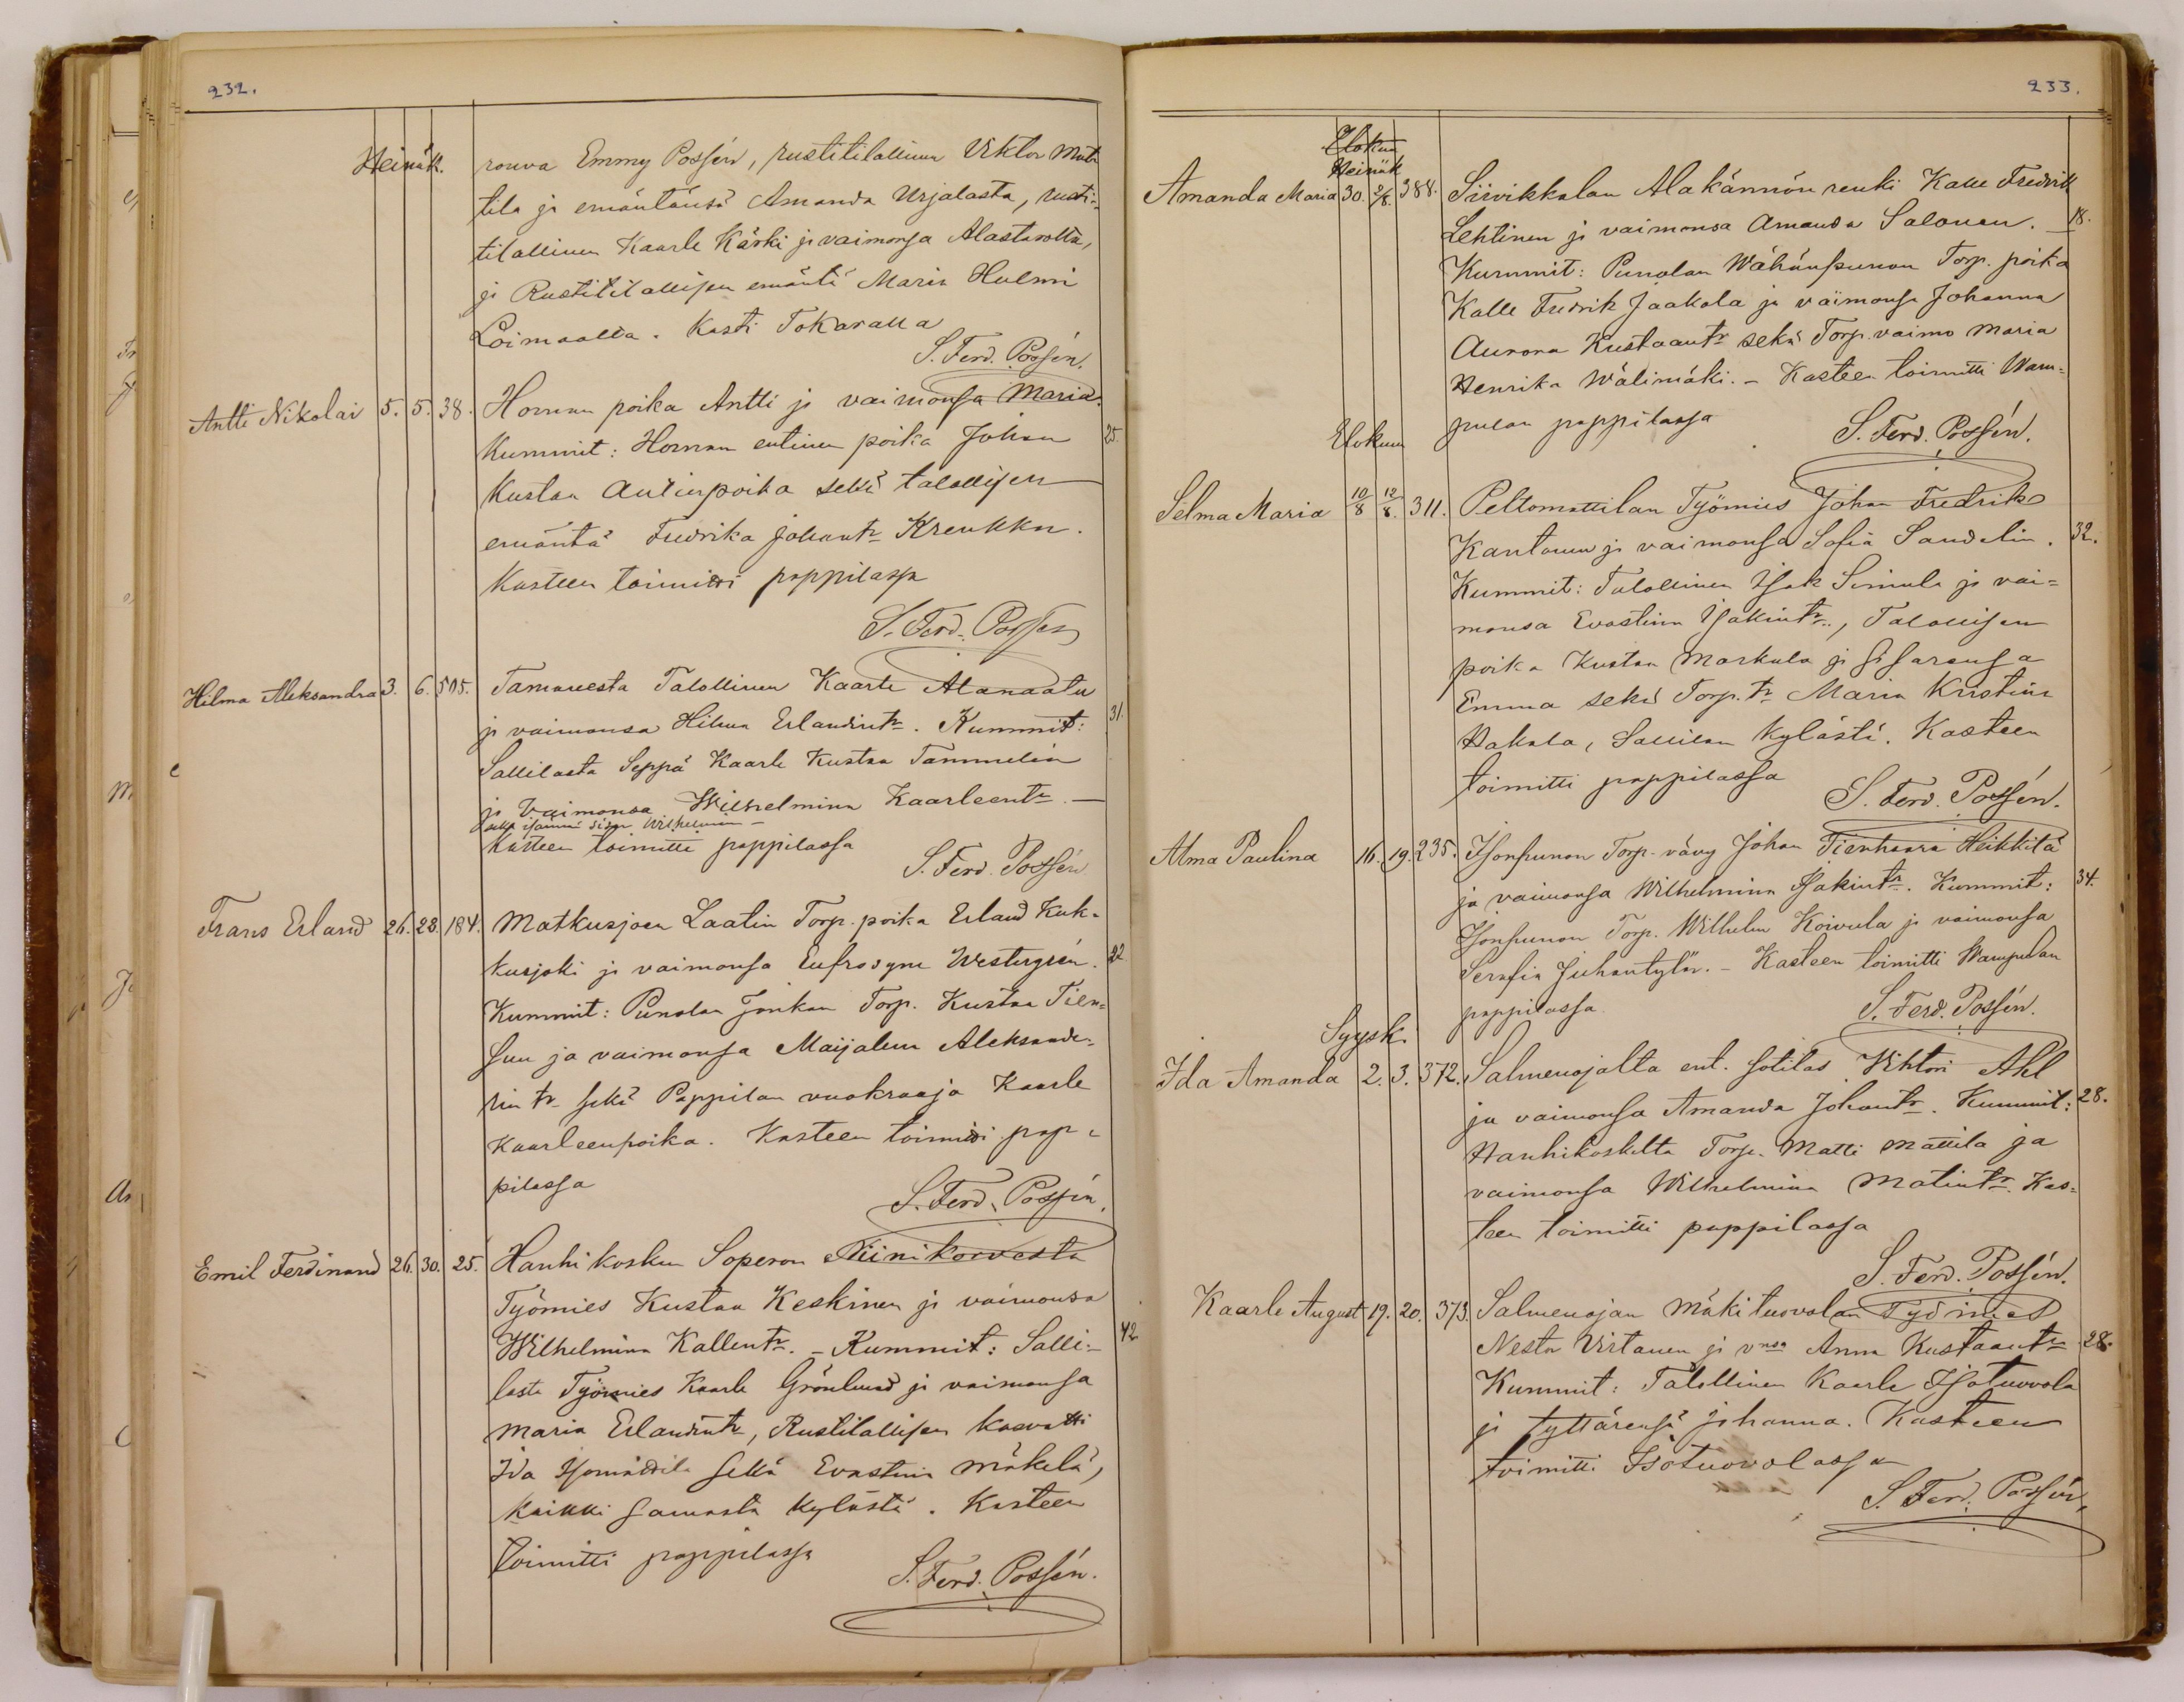 232.
Heinäk.
rouva Emmy Possén, rustitilallinen Viktor Mat
tila ja emäntänsä Amanda Urjalasta, rusti-
tilallinen Kaarle Käski ja vaimonsa Alastarolta,
ja Rustitilallisen emäntä Maria Hulmi
Loimaalla. Kasti Tokaralla
S. Ferd. Possén.
Antti Nikolai 5. 5. 38. Hornan poika Antti ja vaimonsa Maria. 25.
Kummit: Hornan entinen poika Johan
Kustaa Antinpoika sekä talollisen
emäntä Fredrika Johantr Krenkku.
Kasteen toimitti pappilassa
S. Ferd. Possén
Hilma Aleksandra 3. 6. 505. Tamaresta Talollinen Kaarle Alanaatu
ja vaimonsa Hilma Erlandintr. Kummit: 31.
Sallilasta Seppä Kaarle Kustaa Tammelin
ja Vaimonsa Wilhelmina Kaarleentr. —
sekä isännän sisar Wilhelmina —
Kasteen toimitti pappilassa
S. Ferd. Possén
Frans Erland 26. 28. 184. Matkusjoen Laalin Torp. poika Erland Kuk-
kusjoki ja vaimonsa Eufrosyne Westergrén. 22
Kummit: Punolan Jonkan Torp. Kustaa Tien-
suu ja vaimonsa Maijaleena Aleksande-
rin tr sekä Pappilan vuokraaja Kaarle
Kaarleenpoika. Kasteen toimitti pap-
pilassa
S. Ferd. Possén.
Emil Ferdinand 26. 30. 25. Hanhikosken Soperon Niinikorvesta
Työmies Kustaa Keskinen ja vaimonsa
Wilhelmina Kallentr. - Kummit: Salli- 42
lasta Työmies Kaarle Grönlund ja vaimonsa
Maria Erlandintr, Rustitallisen kasvatti
Ida Isomättilä sekä Evastiina Mäkelä,
kaikki samasta kylästä. Kasteen
toimitti pappilassa
S. Ferd. Possén.
233.
Elokuu
Heinäk
Amanda Maria 30. 2/8. 388. Siivikkalan Alakännön renki Kalle Fredrik
Lehtinen ja vaimonsa Amanda Salonen. 18.
Kummit: Punolan Wähänpunon Torp. poika
Kalle Fredrik Jaakola ja vaimonsa Johanna
Aurora Kustaantr sekä Torp. vaimo Maria
Henrika Wälimäki. - Kasteen toimitti Wam-
pulan pappilassa
S. Ferd. Possén.
Elokuu
Selma Maria 10/8 12/8. 311. Peltomattilan Työmies Johan Fredrik
Kantonen ja vaimonsa Sofia Sandelin. 32.
Kummit: Talollinen Isak Simula ja vai-
monsa Evastiina Isakintr., Talollisen
poika Kustaa Markula ja sisarensa
Emma sekä Torp. tr Maria Kristiina
Hakala, Sallilan kylästä. Kasteen
toimitti pappilassa
S. Ferd. Possén.
Alma Paulina 16. 19. 235. Isonpunon Torp. vävy Johan Tienhaara Heikkilä
ja vaimonsa Wilhelmina Isakintr. Kummit: 34.
Isonpunon Torp. Wilhelm Koivula ja vaimonsa
Serafia Juhantytär. - Kasteen toimitti Wampulan
pappilassa.
S. Ferd. Possén.
Syysk.
Ida Amanda 2. 3. 372. Salmenojalta ent. sotilas Wihtori Ahl
ja vaimonsa Amanda Johantr. Kummit: 28.
Hanhikoskelta Torp. Matti Mattila ja
vaimonsa Wilhelmina Matintr. Kas-
teen toimitti pappilassa
S. Ferd. Possén.
Kaarle August 19. 20. 373. Salmenojan Mäkituovolan Työmies
Nestor Virtanen ja vnsa Anna Kustaantr 28.
Kummit: Talollinen Kaarle Isotuovola
ja tyttärensä Johanna. Kasteen
toimitti Isotuovolassa
S. Ferd. Possén.